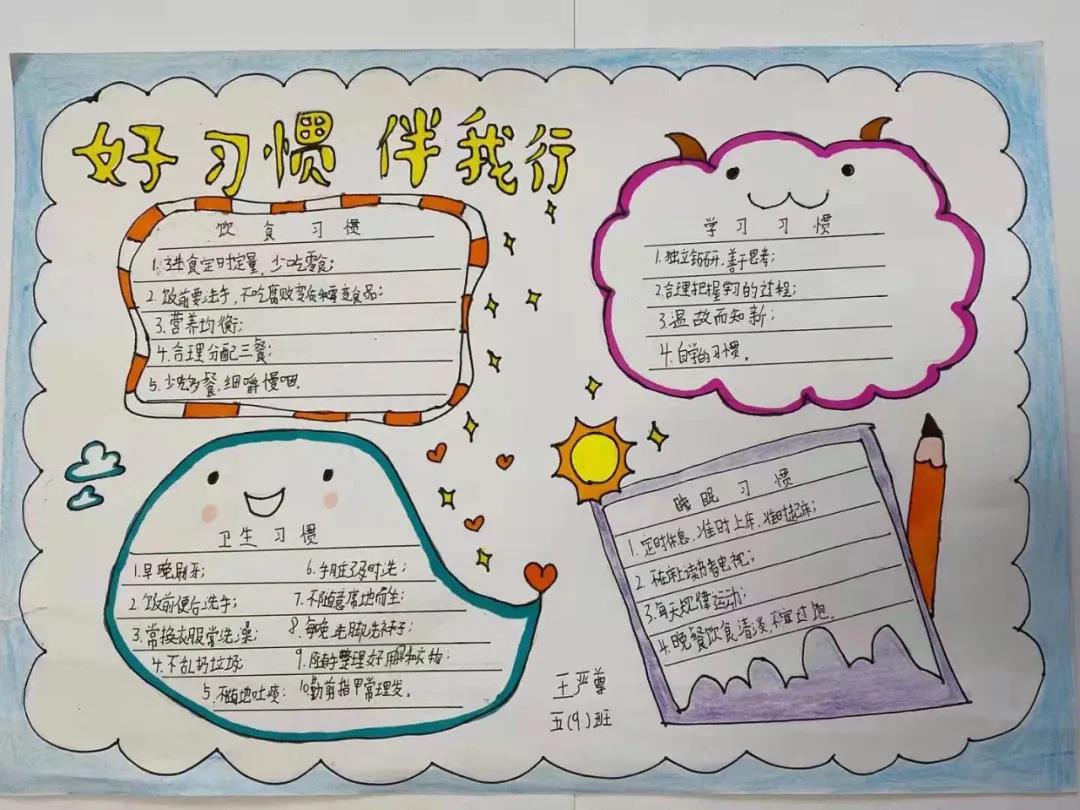 好习惯 伴我行
饮食习惯
1.进食定时定量，少吃零食；
2.饭前要洗手，不吃腐败变质食品；
3.营养均衡；
4.合理分配三餐；
5.少吃多餐，细嚼慢咽。
学习习惯
1.独立钻研，善于思考；
2.合理把握学习的过程；
3.温故而知新；
4.自学的习惯。
卫生习惯
1.早晚刷牙；
2.饭前便后洗手；
3.常换衣服常洗澡；
4.不乱扔垃圾
5.不随地吐痰；
6.手脏了及时洗；
7.不随意席地而坐；
8.每晚洗脚洗袜子；
9.随时整理好用物；
10.勤剪指甲常理发。
睡眠习惯
1.定时休息，准时上床，准时起床；
2.不在床上读书看电视；
3.每天规律运动；
4.晚餐饮食清淡，不宜过饱。
王严尊
五(9)班